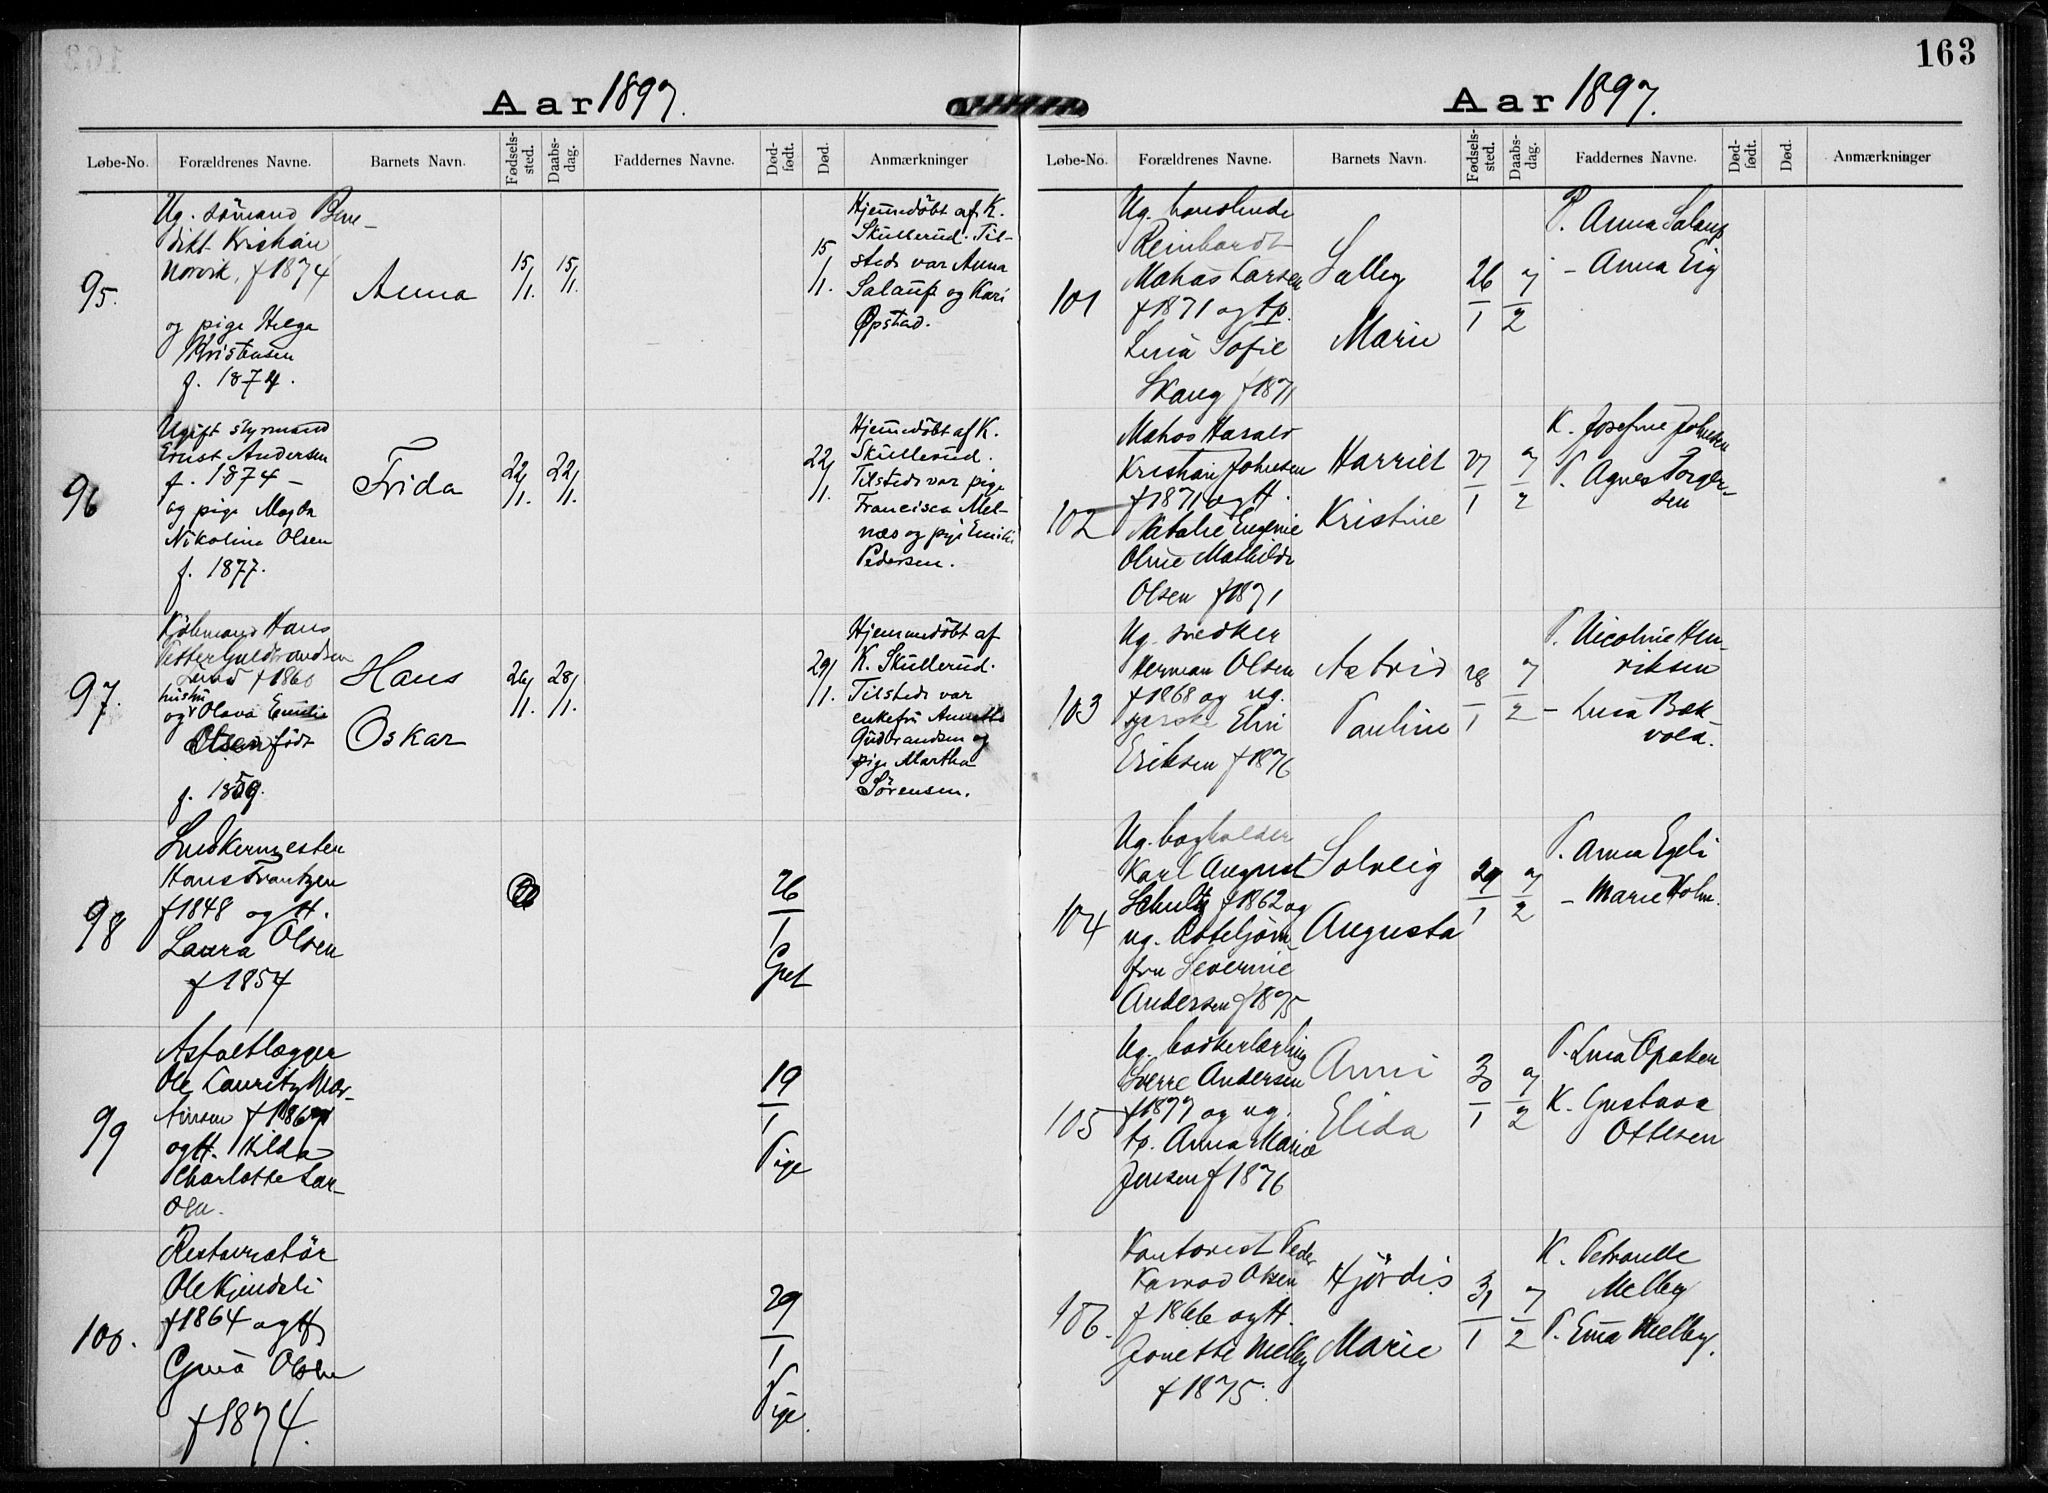 163
Aar 1897.
Løbe-No.
Forældrenes Navne.
Barnets Navn.
Fødsels-
sted.
Daabs-
dag.
Faddernes Navne.
Død-
født.
Død.
Anmærkninger
95.
Ug. sömand Bene-
dikt Kristian
Norvik, f 1874
og pige Helga
Kristensen
f. 1874.
Anna
15/1.
15/1.
15/1.
Hjemmedöbt af K.
Skullerud. Til-
stede var Anna
Salaup og Kari
Opstad.
96
Ugift styrmand
Ernst Andersen
f. 1874 –
og pige Magda
Nikoline Olsen
f. 1877.
Frida
22/1.
22/1.
22/1.
Hjemmedöbt af K.
Skullerud.
Tilstede var pige
Francisca Mel-
næs og pige Emilie
Pedersen.
97.
Kjöbmand Hans
Petter Guldbrandsen
Lund f 1860
hustru
og Olava Emilie
Olsen født
f. 1859.
Hans
Oskar
26/1.
28/1.
29/1.
Hjemmedöbt af
K. Skullerud.
Tilstede var
enkefru Annette
Gudbrandsen og
pige Martha
Sörensen.
98
Snedkermester
Hans Frantzen
f 1848 og H.
Laura Olsen
f 1854
26
1
Gut
99
Asfaltlægger
Ole Lauritz Mar-
tinsen f 1867
og H. Hilda
Charlotte Lar-
sen.
19
1
Pige
100.
Restauratör
Ole Kjendsli
f 1864 og H
Gina Olsen
f 1874.
29
1
Pige.
Aar 1897.
Løbe-No.
Forældrenes Navne.
Barnets Navn.
Fødsels-
sted.
Daabs-
dag.
Faddernes Navne.
Død-
født.
Død.
Anmærkninger
101
Ug.
Reinhardt
Mathias Larsen
f 1871 og tp.
Lina Sofie
Skaug f 1871
Sally
Marie
26
1
7
2
P. Anna Salaup
– Anna Eig
102
Mathias Harald
Kristian Johnsen
f 1871 og H.
Natalie Eugenie
Oline Mathilde
Olsen f 1871
Harriet
Kristine
27
1
7
2
K. Josefine Johnsen
P. Agnes Torger-
sen
103
Ug. snedker
Herman Olsen
f 1868 og ug.
syerske Elvi
Eriksen f 1876
Astrid
Pauline
28
1
7
2
P. Nicoline Hen-
riksen
– Lina Bæk-
vold.
104
Ug. bogholder
Karl August
Schultz f 1862 og
ug.
fru Severine
Andersen f 1875
Solveig
Augusta
29
1
7
2
P. Anna Egeli
– Marie Holm.
105
Ug. bødkerlærling
Sverre Andersen
f 1877 og ug.
tp. Anna Marie
Jensen f 1876
Anni
Elida
30
1
7
2
P. Lina Opaker
K. Gustava
Ottesen
106.
Kontorist Peder
Konrad Olsen
f 1866 og H.
Jonette Melby
f 1875.
Hjördis
Marie
31
1
7
2
K. Petronelle
Melby
P. Ema Melby.